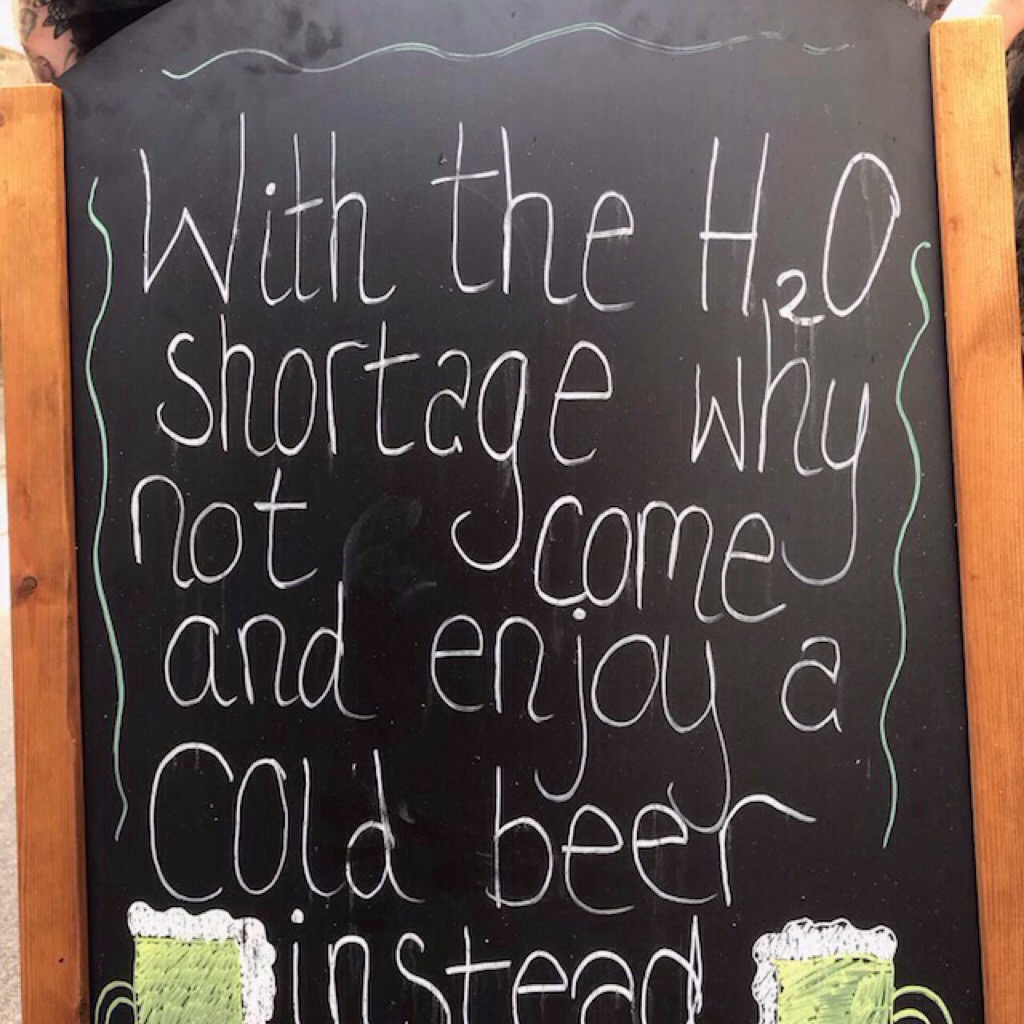 With the H₂O
shortage why
not come
and enjoy a
Cold beer
instead